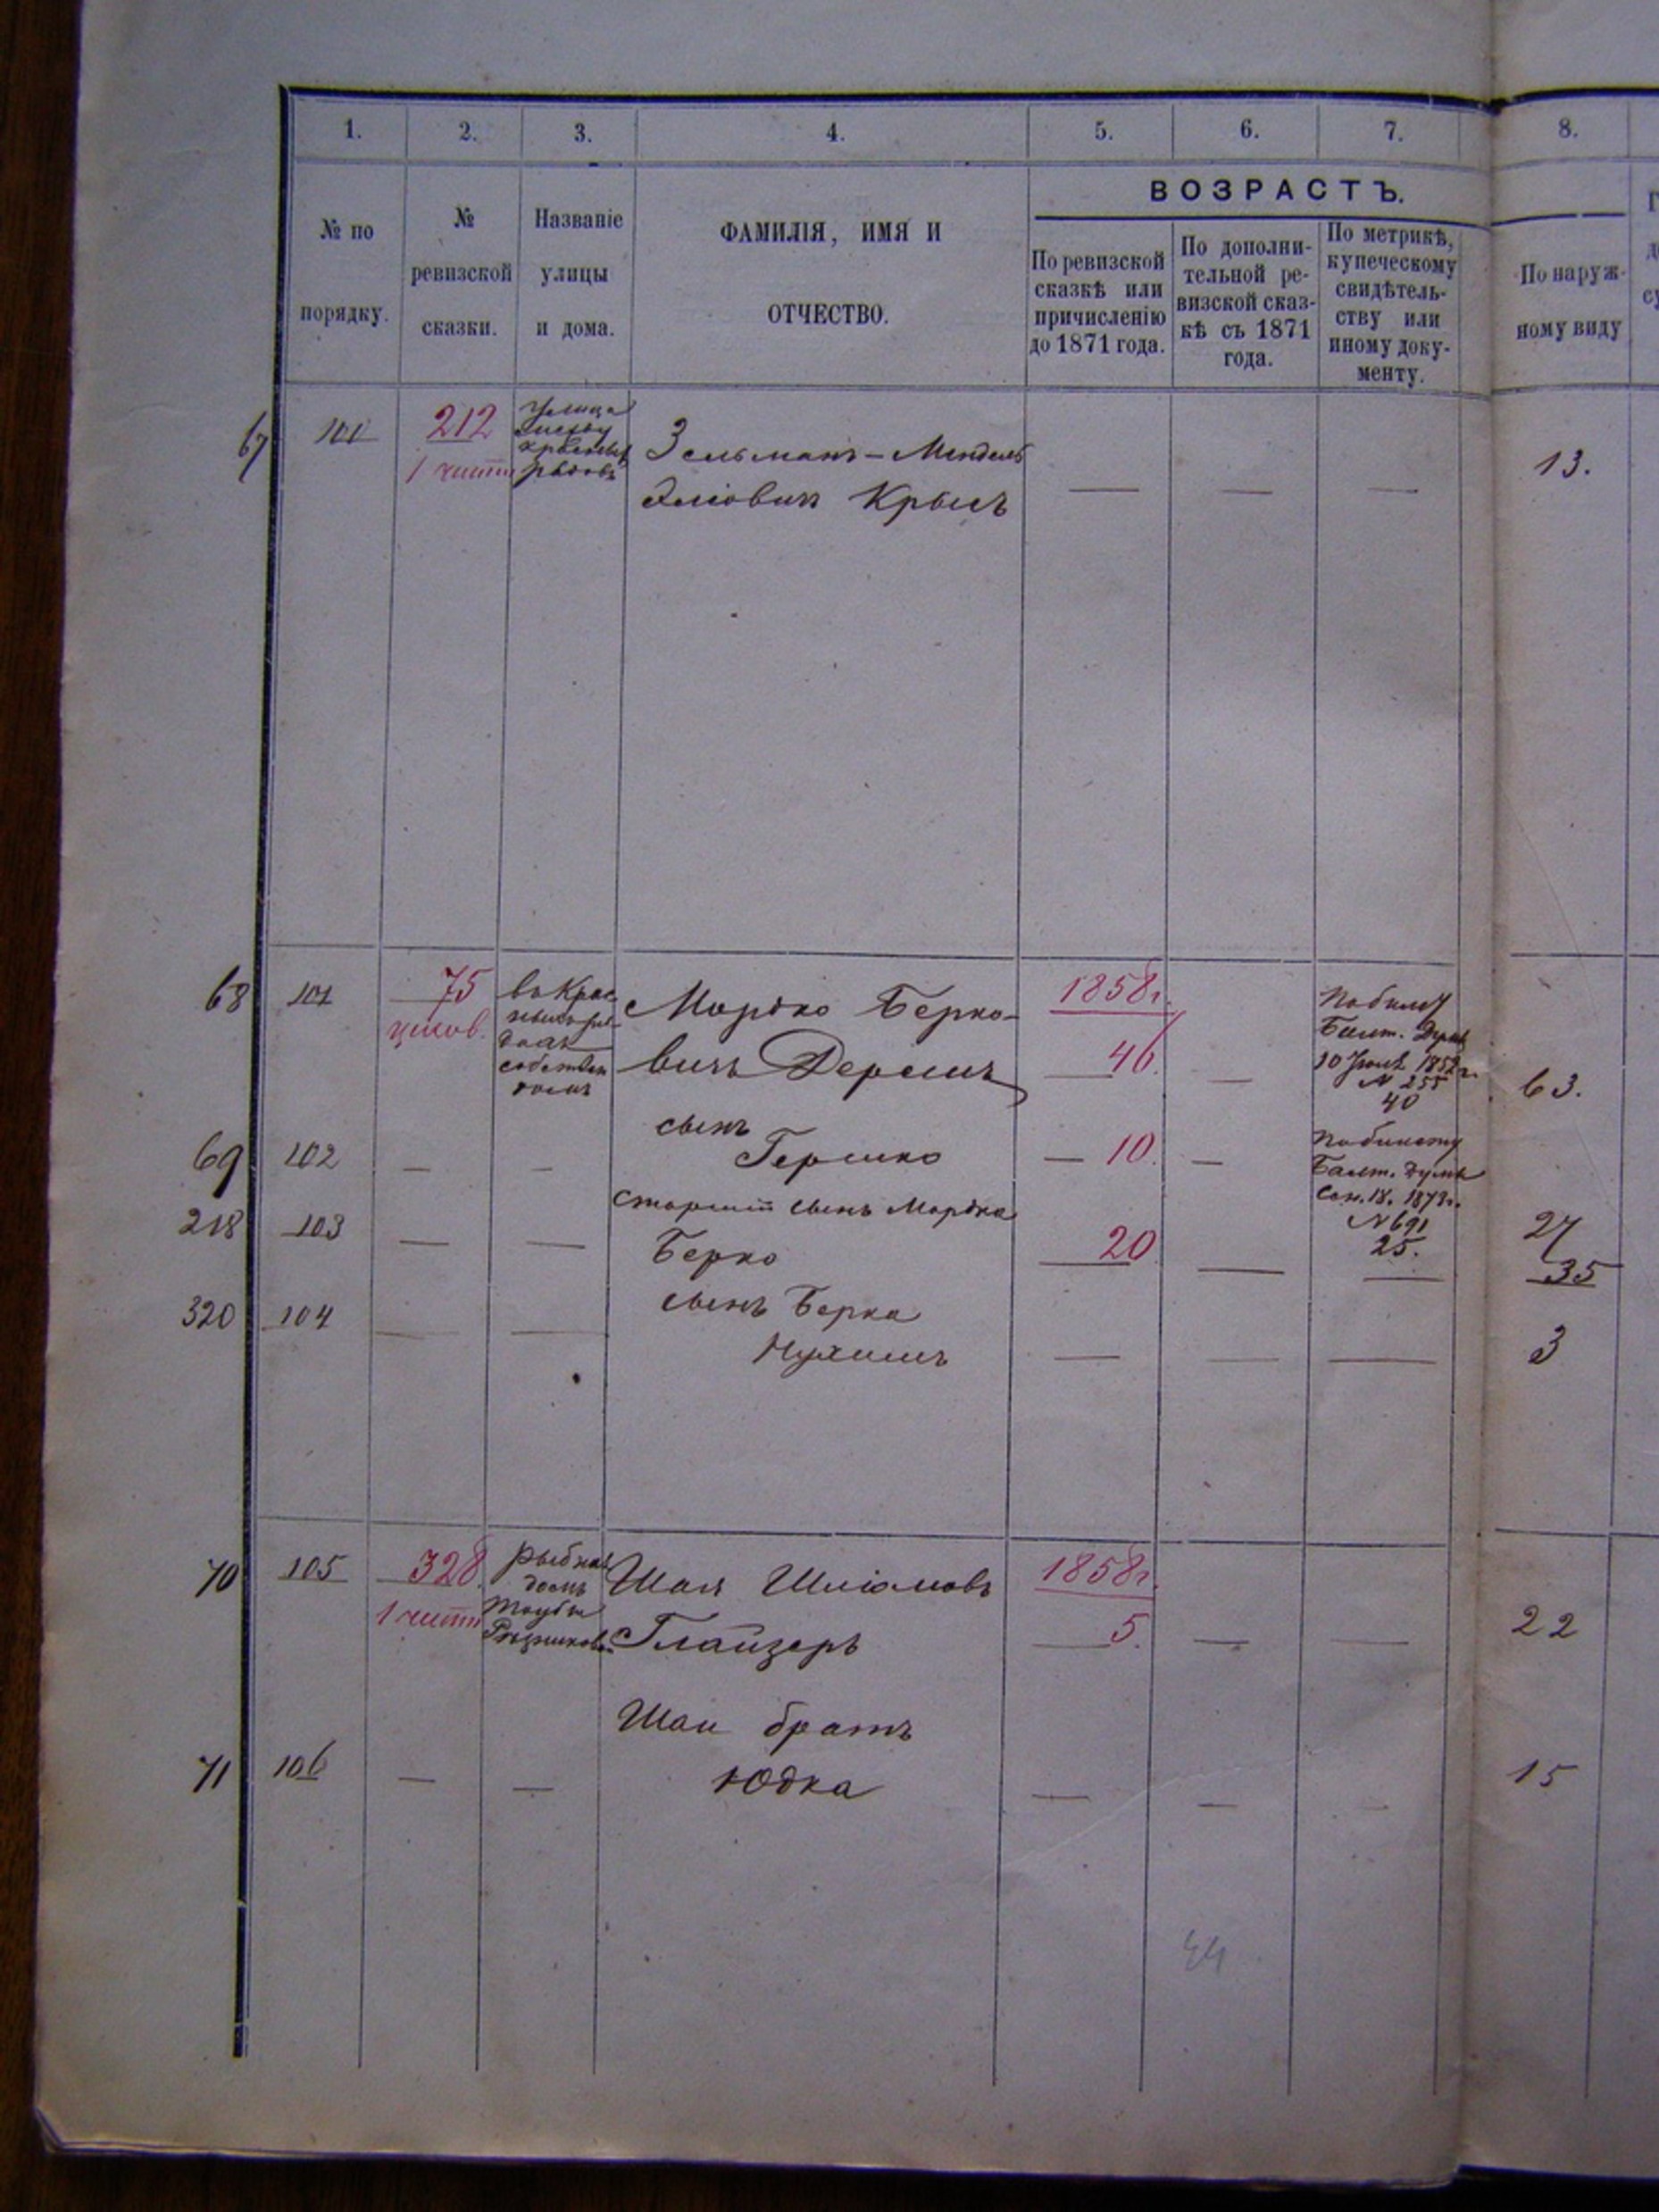 1. 2. 3. 4. 5. 6. 7. 8.
ВОЗРАСТЪ.
№ по порядку.
№ ревизской сказки.
Названіе улицы и дома.
ФАМИЛІЯ, ИМЯ И
ОТЧЕСТВО.
По ревизской
сказкѣ или
причисленію
до 1871 года.
По дополни-
тельной ре-
визской сказ-
кѣ съ 1871
года.
По метрикѣ,
купеческому
свидѣтель-
ству или
иному доку-
менту.
По наруж-
ному виду
67 212 Улица
1 рядовъ
Зельманъ-Мендель — — — 13.
Эліовичъ Крымъ
68 101 75 1858г.
Мордко Берко-
вичъ 46. — 63.
собствен
домъ
По билету
Балт. Думы
10 1852г.
N 255
40
сынъ
69 102 — — Гершко 10. —
По билету
Балт. Думы
Сен. 18. 1873г.
N 691
25.
старшій сынъ Мордка
218 103 — — Берко 20 — — 27
35
сынъ Берка
320 104 — — Нухимъ — — — 3
70 105 328. Рыбная Шая Шліомовъ 1858г.
домъ
1 Таубы
Глайзеръ 5. — — 22
Шаи братъ
71 106 — — Юдка — — — 15
44